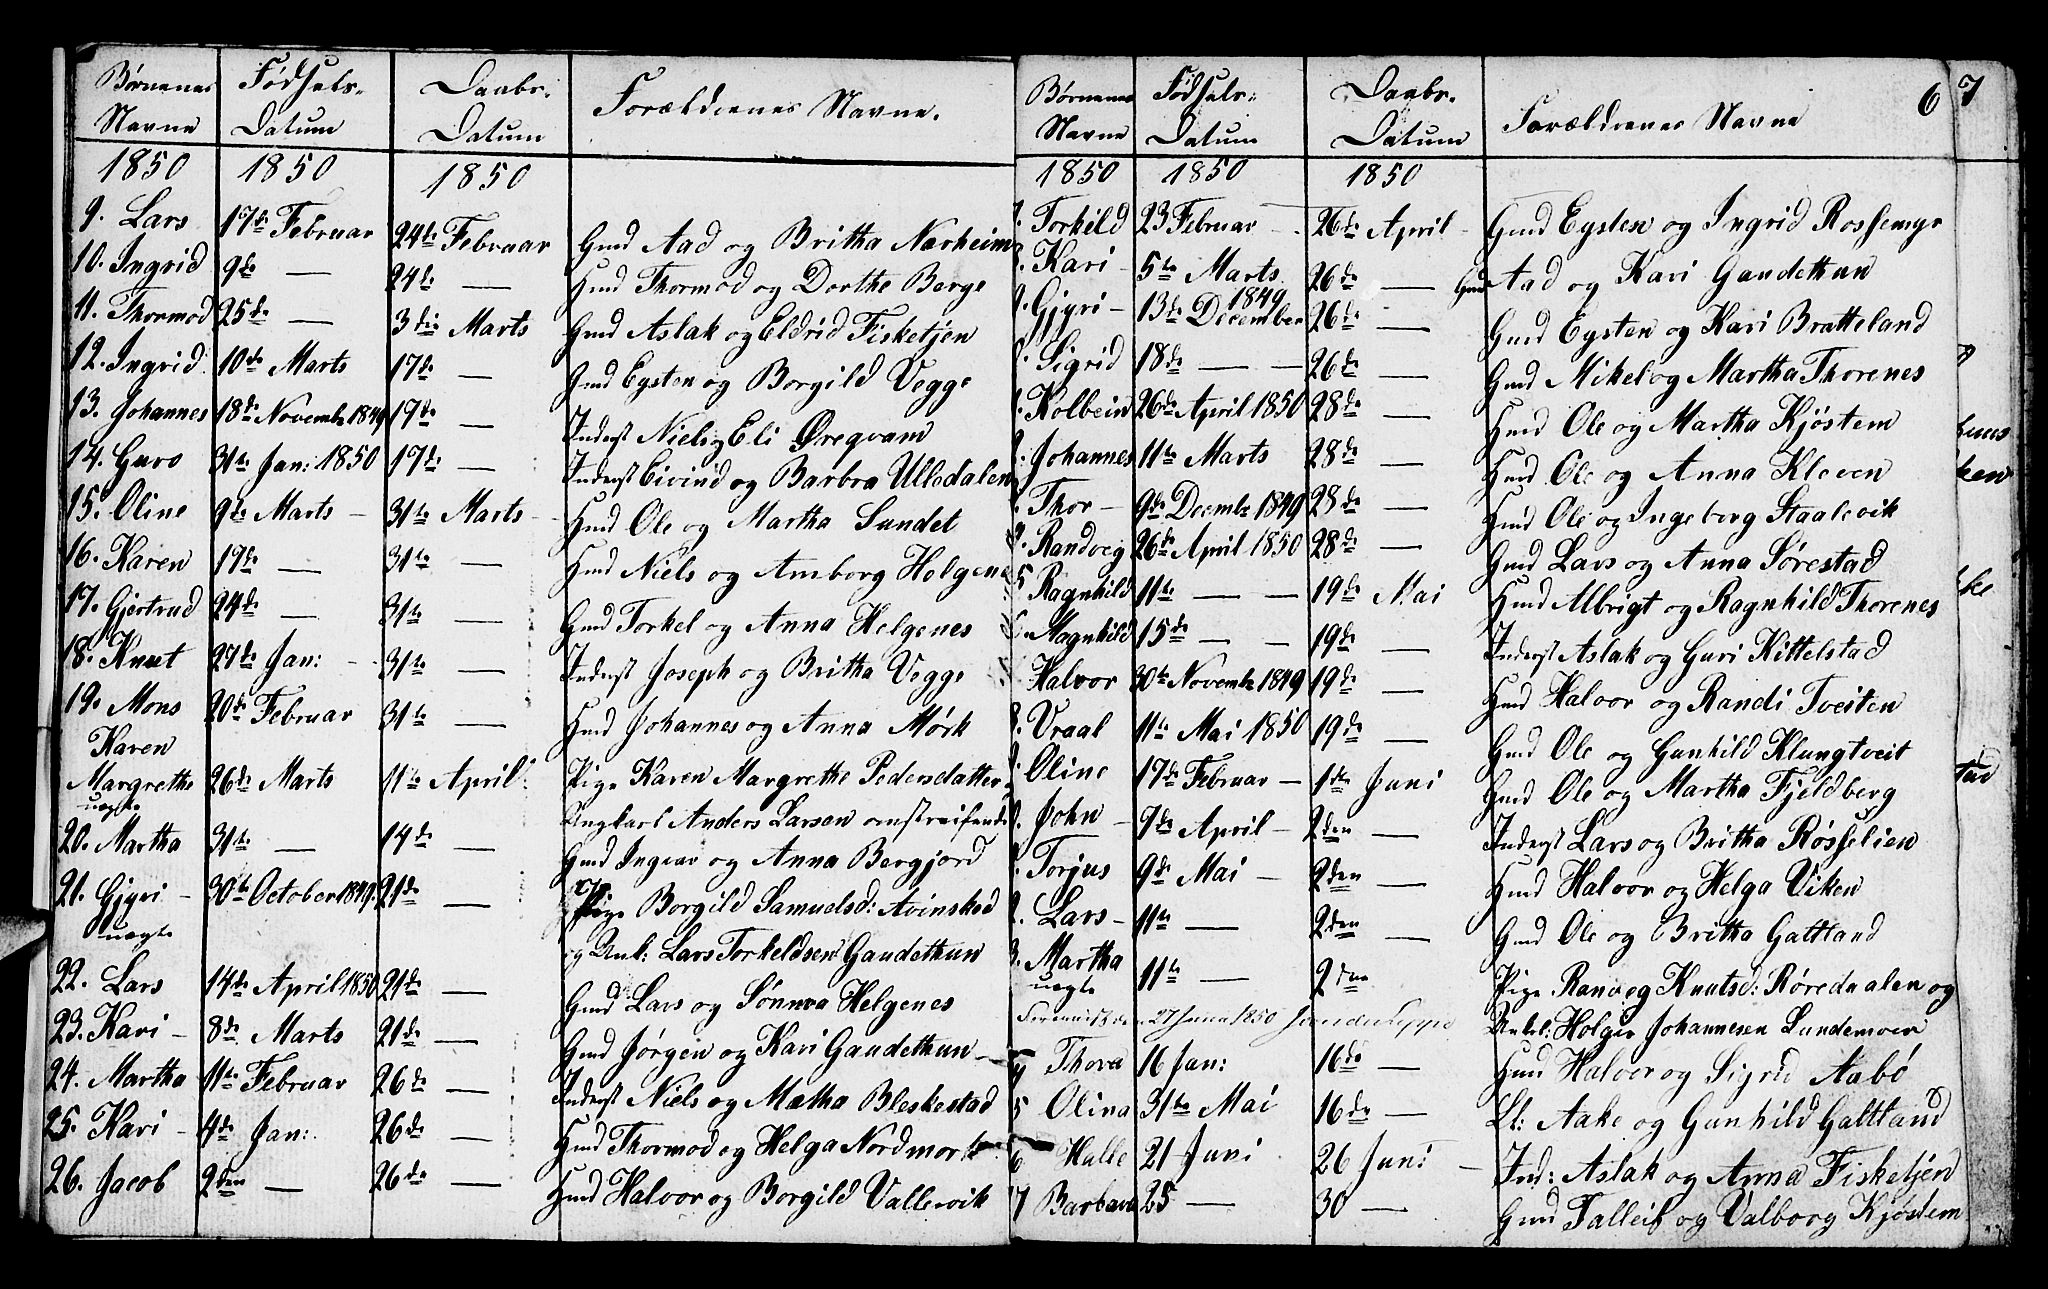 Børnenes Navne
Fødsels-Datum
Daabs-Datum
Forældrenes Navne.
1850 1850 1850
9. Lars 17de Februar 24de Februar Gmd Aad og Britha Nærheim
10. Ingrid 9de — 24de — Hmd Thormod og Dorthe Berge
11. Thormod 25de — 3die Marts Gmd Aslak og Eldrid Fisketjen
12. Ingrid 10de Marts 17de — Gmd Eysten og Borgild Vegge
13. Johannes 18de Novembr 1849 17de — Inderst Niels og Eli Øregvam
14. Guro 31te Jan: 1850 17de — Inderst Eivind og Barbra Ulledalen
15. Oline 9de Marts — 31te Marts — Hmd Ole og Martha Sundet
16. Karen 17de — 31te — Hmd Niels og Amborg Helgene
17. Gjertrud 24de — 31te — Gmd Torkel og Anna Helgenes
18. Knut 27de Jan: — 31te — Inderst Joseph og Britha Vegge
19. Mons 20de Februar 31te — Hmd Johannes og Anna Mørk
Karen
Margrethe 26de Marts 11te April Pige Karen Margrethe Pedersdatter
uægte Ungkarl Anders Larsen omstreifende
20. Martha 31te — 14de — Gmd Ingvar og Anna Bergjord
21. Gjyri — 30te October 1849 21de — Pige Borgild Samuelsd: Avinskod
uægte og Unk: Lars Torkeldsen Gaudethun
22. Lars 14de April 1850 21de — Gmd Lars og Sønnva Helgenes
23. Kari — 8de Marts 21de — Gmd Jørgen og Kari Gaudethun
24. Martha 11te Februar 26de — Inderst Niels og Mætha Bleskestad
25. Kari — 4de Jan: 26de — Hmd Thormod og Helga Nordmork
26. Jacob 2den — 26de — Hmd Halvor og Borgild Vallevik
Børnenes Navne
Fødsels-Datum
Daabs-Datum
Forældrenes Navne
6 7
1850 1850 1850
Torkild 23 Februar — 26de April — Gmd Eysten og Ingrid Rossemyr
Kari — 5te Marts 26de — Gmd Aad og Kari Gaudethun
Gjyri — 13de December 1849 26de — Gmd Eysten og Kari Bratteland
Sigrid 18de — — 26de — Gmd Mikel og Martha Thorenes
Kolbein 26de April 1850 28de — Hmd Ole og Martha Kjøstem
Johannes 11te Marts 28de — Hmd Ole og Anna Kleven
Thor — 9de Decembr 1849 28de — Hmd Ole og Ingeborg Staalevik
Randveg 26de April 1850 28de — Gmd Lars og Anna Sørestad
5 Ragnhild 11te — — 19de Mai Hmd Albrigt og Ragnhild Thorenes
6 Magnhild 15de — — 19de — Inderst Aslak og Guri Kittelstad
Halvor 30te Novembr 1849 19de — Hmd Halvor og Randi Tveiten
Vraal 11te Mai 1850 19de — Gmd Ole og Gunhild Klungtveit
Oline 17de Februar — 1ste Juni Gmd Ole og Martha Fjeldberg
John — 7de April — 2den — Inderst Lars og Britha Røsselien
Torjus 9de Mai — 2den — Hmd Halvor og Helga Viken
Lars — 11te — 2den — Gmd Ole og Britha Galtland
3. Martha 11te — 2den Pige Ranveg Knutsd: Røredualen og
uægte Unkl: Holger Johannesen Lundemoer
27 Juni 1850
4 Thora 16 Jan: 16de — Hmd Halvor og Sigrid Aabø
5 Olina 31te Mai 16de — Lt: Aake og Gunhild Galtland
6 Halle 21 Juni 26 Juni — Ind: Aslak og Anna Fisketjen
7 Barbara 25 — 30 — Gmd Falleif og Valborg Kjøstem